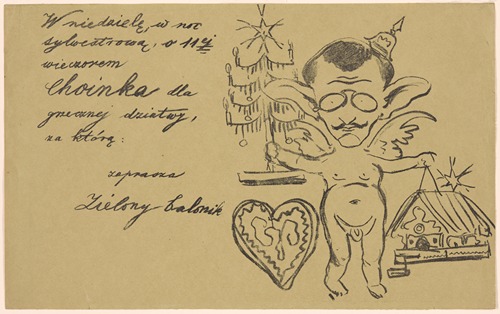 W niedzielę, w noc
sylwestrową, o 11ej
wieczorem
Choinka dla
grzecznej dziatwy,
za którą:
zaprasza
Zielony Balonik